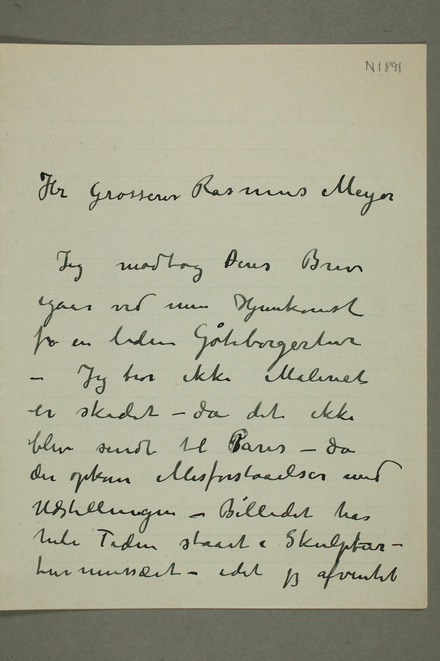 N 1891
Hr Grosserer Rasmus Meyer
Jeg modtog Deres Brev
igaar ved min Hjemkomst
fra en liden Gøteborgertur
– Jeg tror ikke Maleriet
er skadet – da det ikke
blev sendt til Paris – da
der opkom Misforstaaelser med
Udstillingen – Billedet har
hele Tiden staaet i Skulptur–
turmusæet – idet jeg afventet